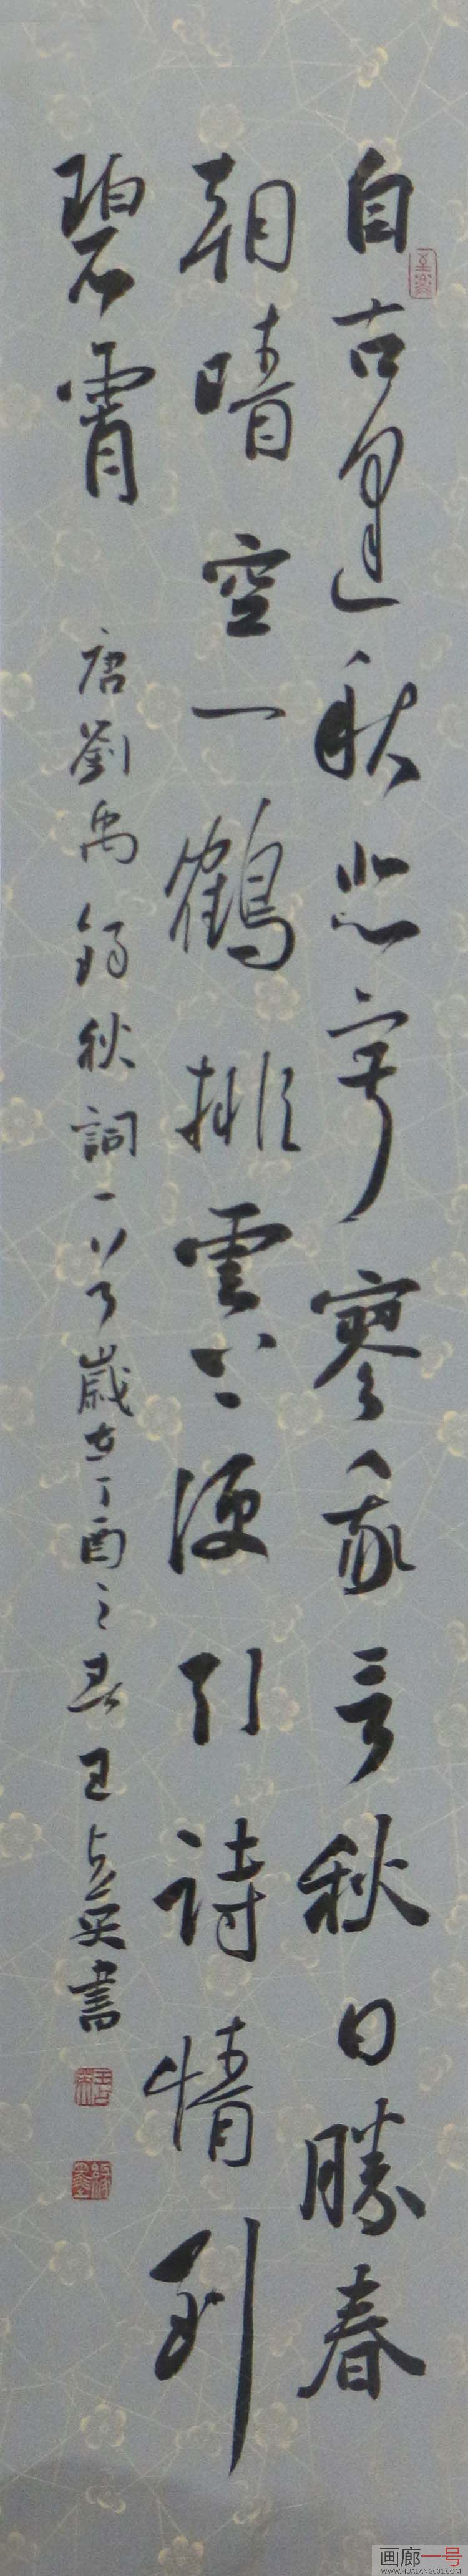 自古逢秋悲寂寥我言秋日勝春
朝晴空一鶴排雲上便引詩情到
碧霄
唐劉禹錫秋詞一首歲在丁酉之春王占英書
画廊一号
WWW.HUALANG001.COM